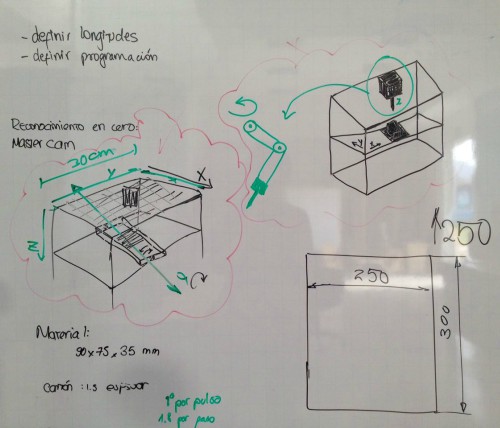 - definir longitudes
- definir programación
Reconocimiento en cero:
Mastercam
20cm
Y
X
Z
Z
Y
X
$1250
250
300
Material:
90x75x35 mm
1° por pulso
1.8 por paso